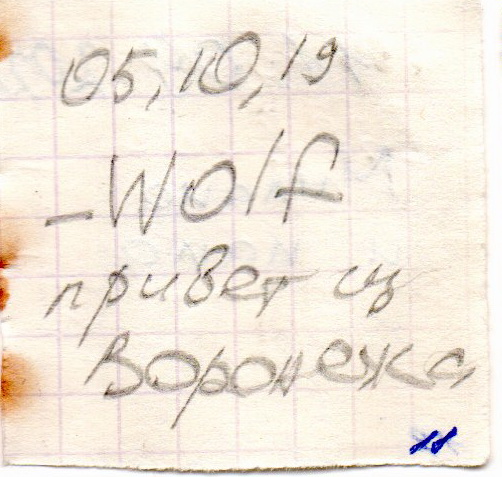 05,10,19
-Wolf
привет из
Воронежа
11